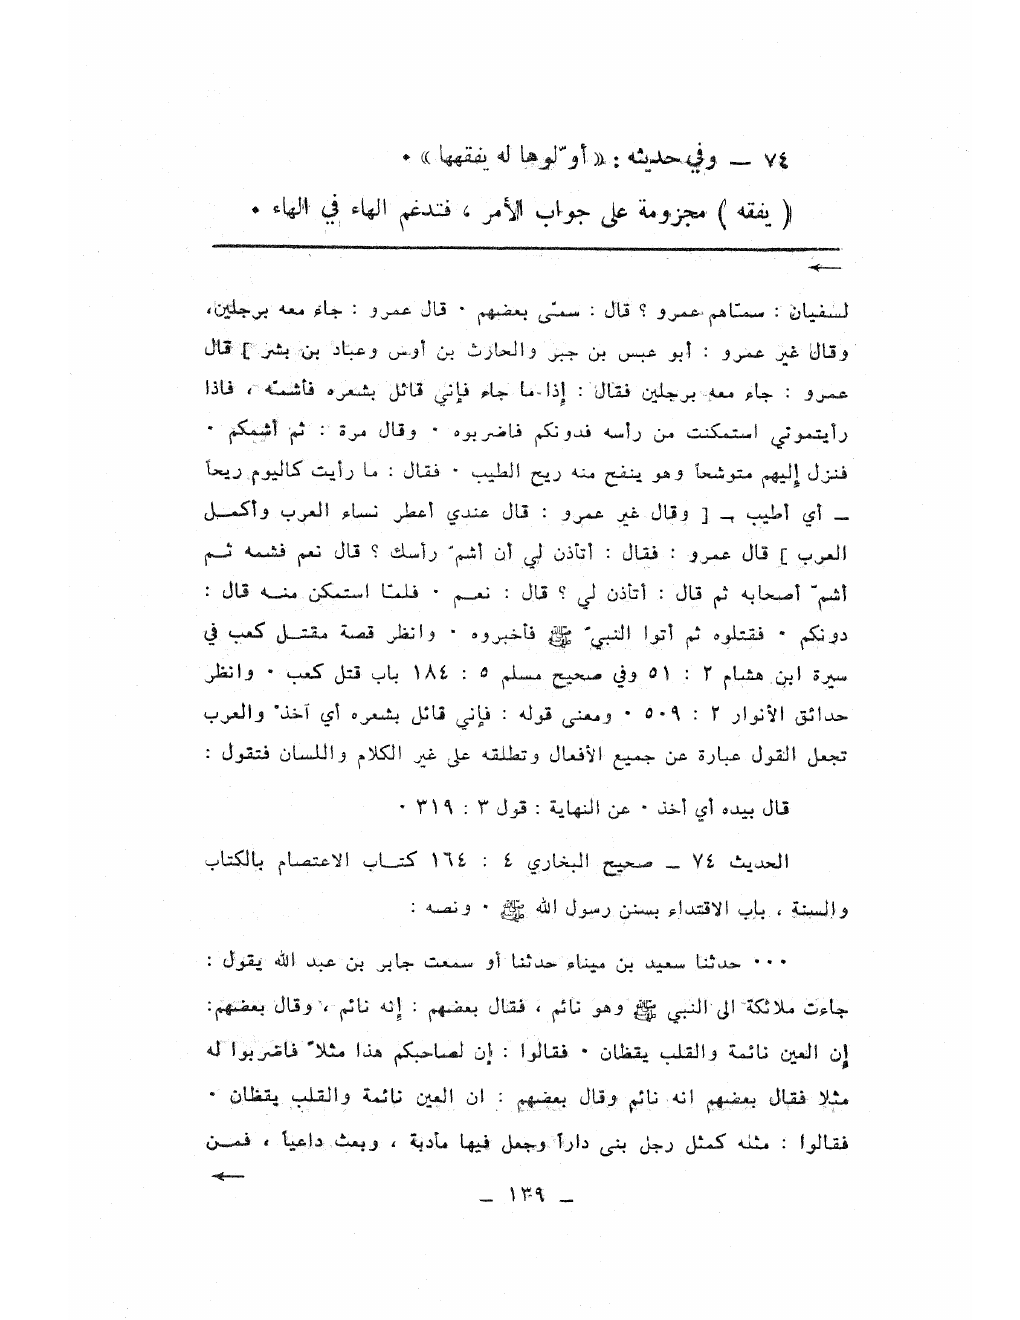 ٧٤ ــ وفي حديثه : « أوّلوها له يفقهها » ٠
( يفقه ) مجزومة على جواب الأمر ، فتدغم الهاء في الهاء ٠
←
لسفيان : سمّاهم عمرو ؟ قال : سمّى بعضهم ٠ قال عمرو : جاء معه برجلين،
وقال غير عمرو : أبو عبس بن جبر والحارث بن أوس وعباد بن بشر ] قال
عمرو : جاء معه برجلين فقال : إذا ما جاء فإني قائل بشعره فأشمّه ، فاذا
رأيتموني استمكنت من رأسه فدونكم فاضربوه ٠ وقال مرة : ثم أشمكم ٠
فنزل إليهم متوشحاً وهو ينفح منه ريح الطيب ٠ فقال : ما رأيت كاليوم ريحاً
ــ أي أطيب ــ [ وقال غير عمرو : قال عندي أعطر نساء العرب وأكمــل
العرب ] قال عمرو : فقال : أتأذن لي أن أشمّ رأسك ؟ قال نعم فشمه ثــم
أشمّ أصحابه ثم قال : أتأذن لي ؟ قال : نعــم ٠ فلمّا استمكن منــه قال :
دونكم ٠ فقتلوه ثم أتوا النبيّ ﷺ فأخبروه ٠ وانظر قصة مقتــل كعب في
سيرة ابن هشام ٢ : ٥١ وفي صحيح مسلم ٥ : ١٨٤ باب قتل كعب ٠ وانظر
حدائق الأنوار ٢ : ٥٠٩ ٠ ومعنى قوله : فإني قائل بشعره أي آخذ والعرب
تجعل القول عبارة عن جميع الأفعال وتطلقه على غير الكلام واللسان فتقول :
قال بيده أي أخذ ٠ عن النهاية : قول ٣ : ٣١٩ ٠
الحديث ٧٤ ــ صحيح البخاري ٤ : ١٦٤ كتــاب الاعتصام بالكتاب
والسنة ، باب الاقتداء بسنن رسول الله ﷺ ٠ ونصه :
٠٠٠ حدثنا سعيد بن ميناء حدثنا أو سمعت جابر بن عبد الله يقول :
جاءت ملائكة الى النبي ﷺ وهو نائم ، فقال بعضهم : إنه نائم ، وقال بعضهم:
إن العين نائمة والقلب يقظان ٠ فقالوا : إن لصاحبكم هذا مثلاً فاضربوا له
مثلا فقال بعضهم انه نائم وقال بعضهم : ان العين نائمة والقلب يقظان ٠
فقالوا : مثله كمثل رجل بنى داراً وجعل فيها مأدبة ، وبعث داعياً ، فمــن
←
ــ ١٣٩ ــ